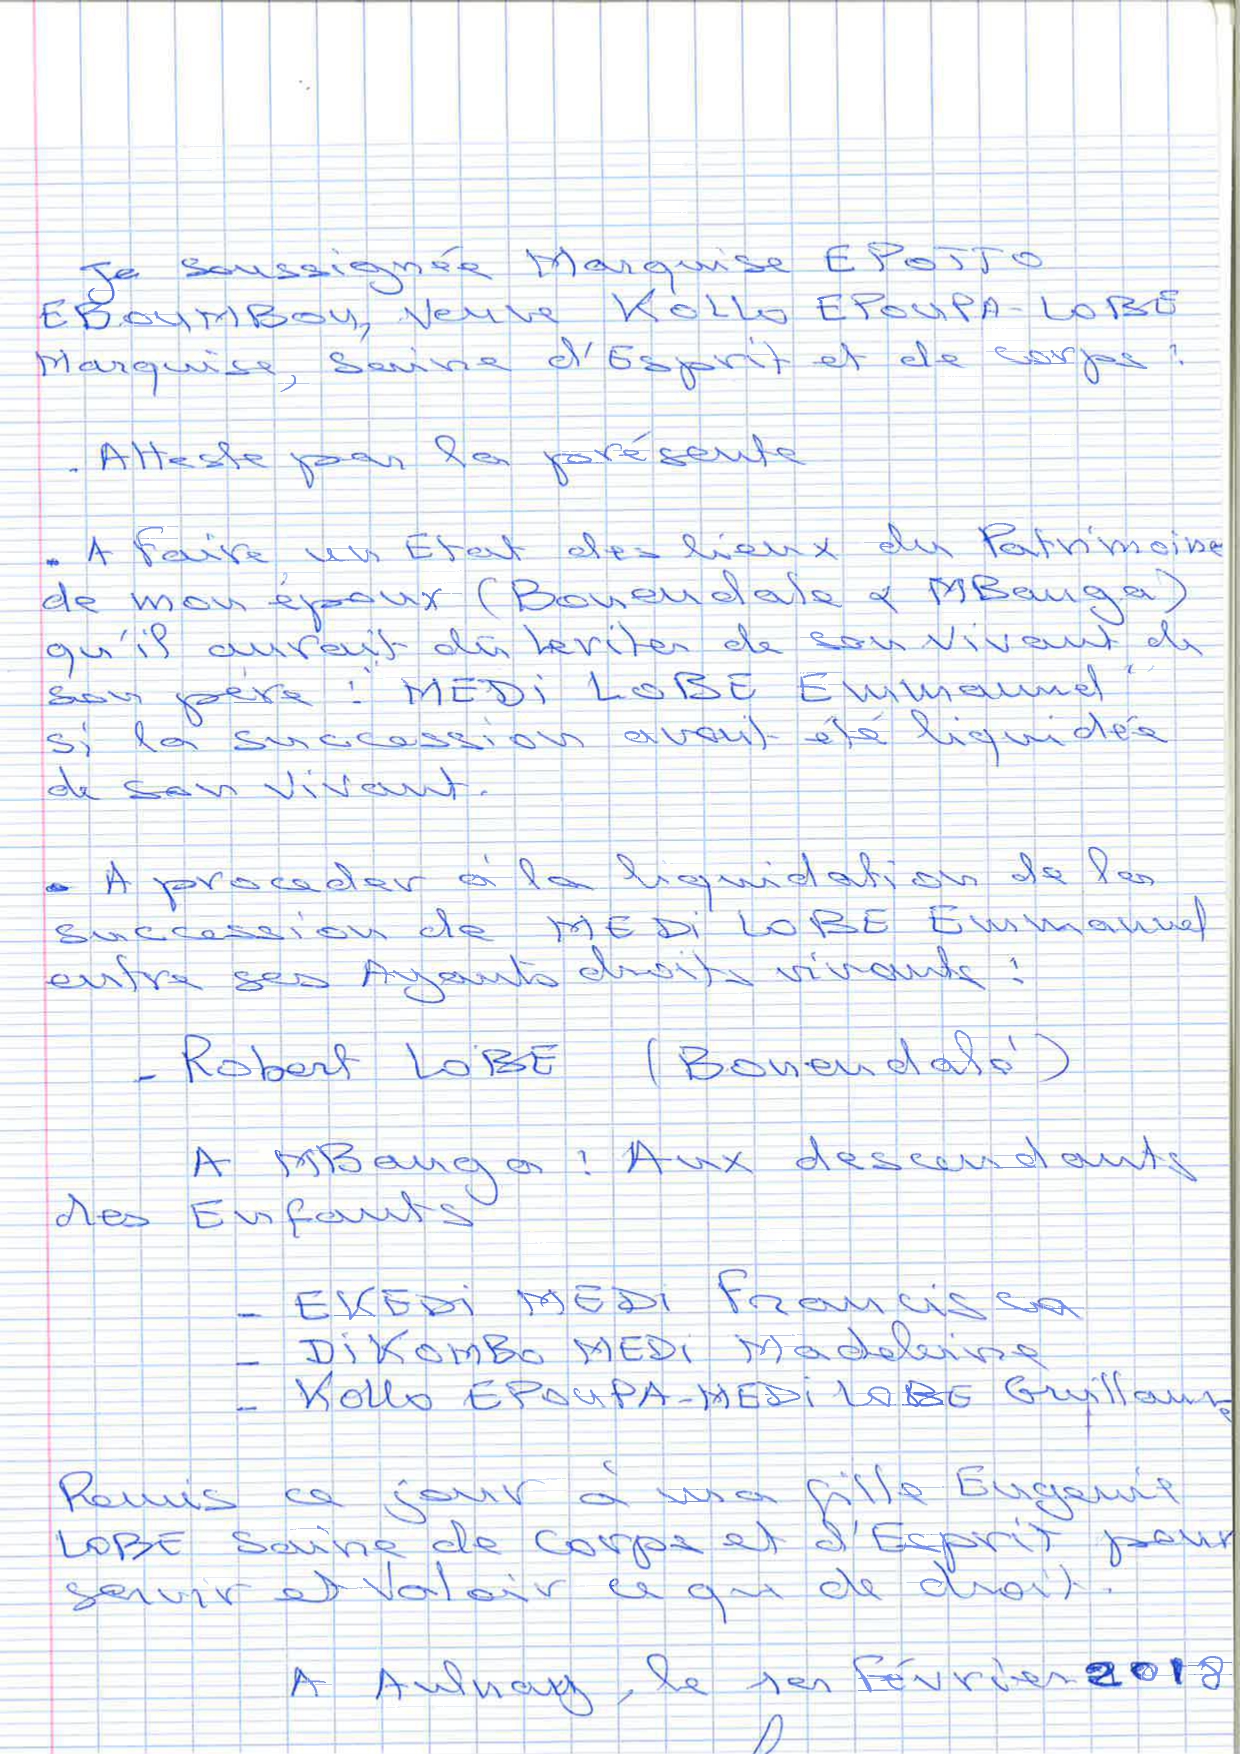 Je soussignée Marquise EPOTTO
EBOUMBOU, Veuve KOLLO EPOUPA-LOBE
Marquise, Saine d'Esprit et de corps :
. Atteste par la présente
. A faire un Etat des lieux du Patrimoine
de mon époux (Bonendale & MBanga)
qu'il aurait dû heriter de son vivant de
son père : MEDI LOBE Emmanuel
si la succession avait été liquidée
de son vivant.
. A proceder à la liquidation de la
succession de MEDI LOBE Emmanuel
entre ses Ayants droits vivants :
- Robert LOBE (Bonendalé)
A MBanga : Aux descendants
des Enfants
- EKEDI MEDI Francisca
- DIKOMBO MEDI Madeleine
- KOLLO EPOUPA-MEDI LOBE Guillaume
Remis ce jour à ma fille Eugenie
LOBE Saine de corps et d'Esprit pour
servir et valoir ce qui de droit.
A Aulnay, le 1er Février 2018